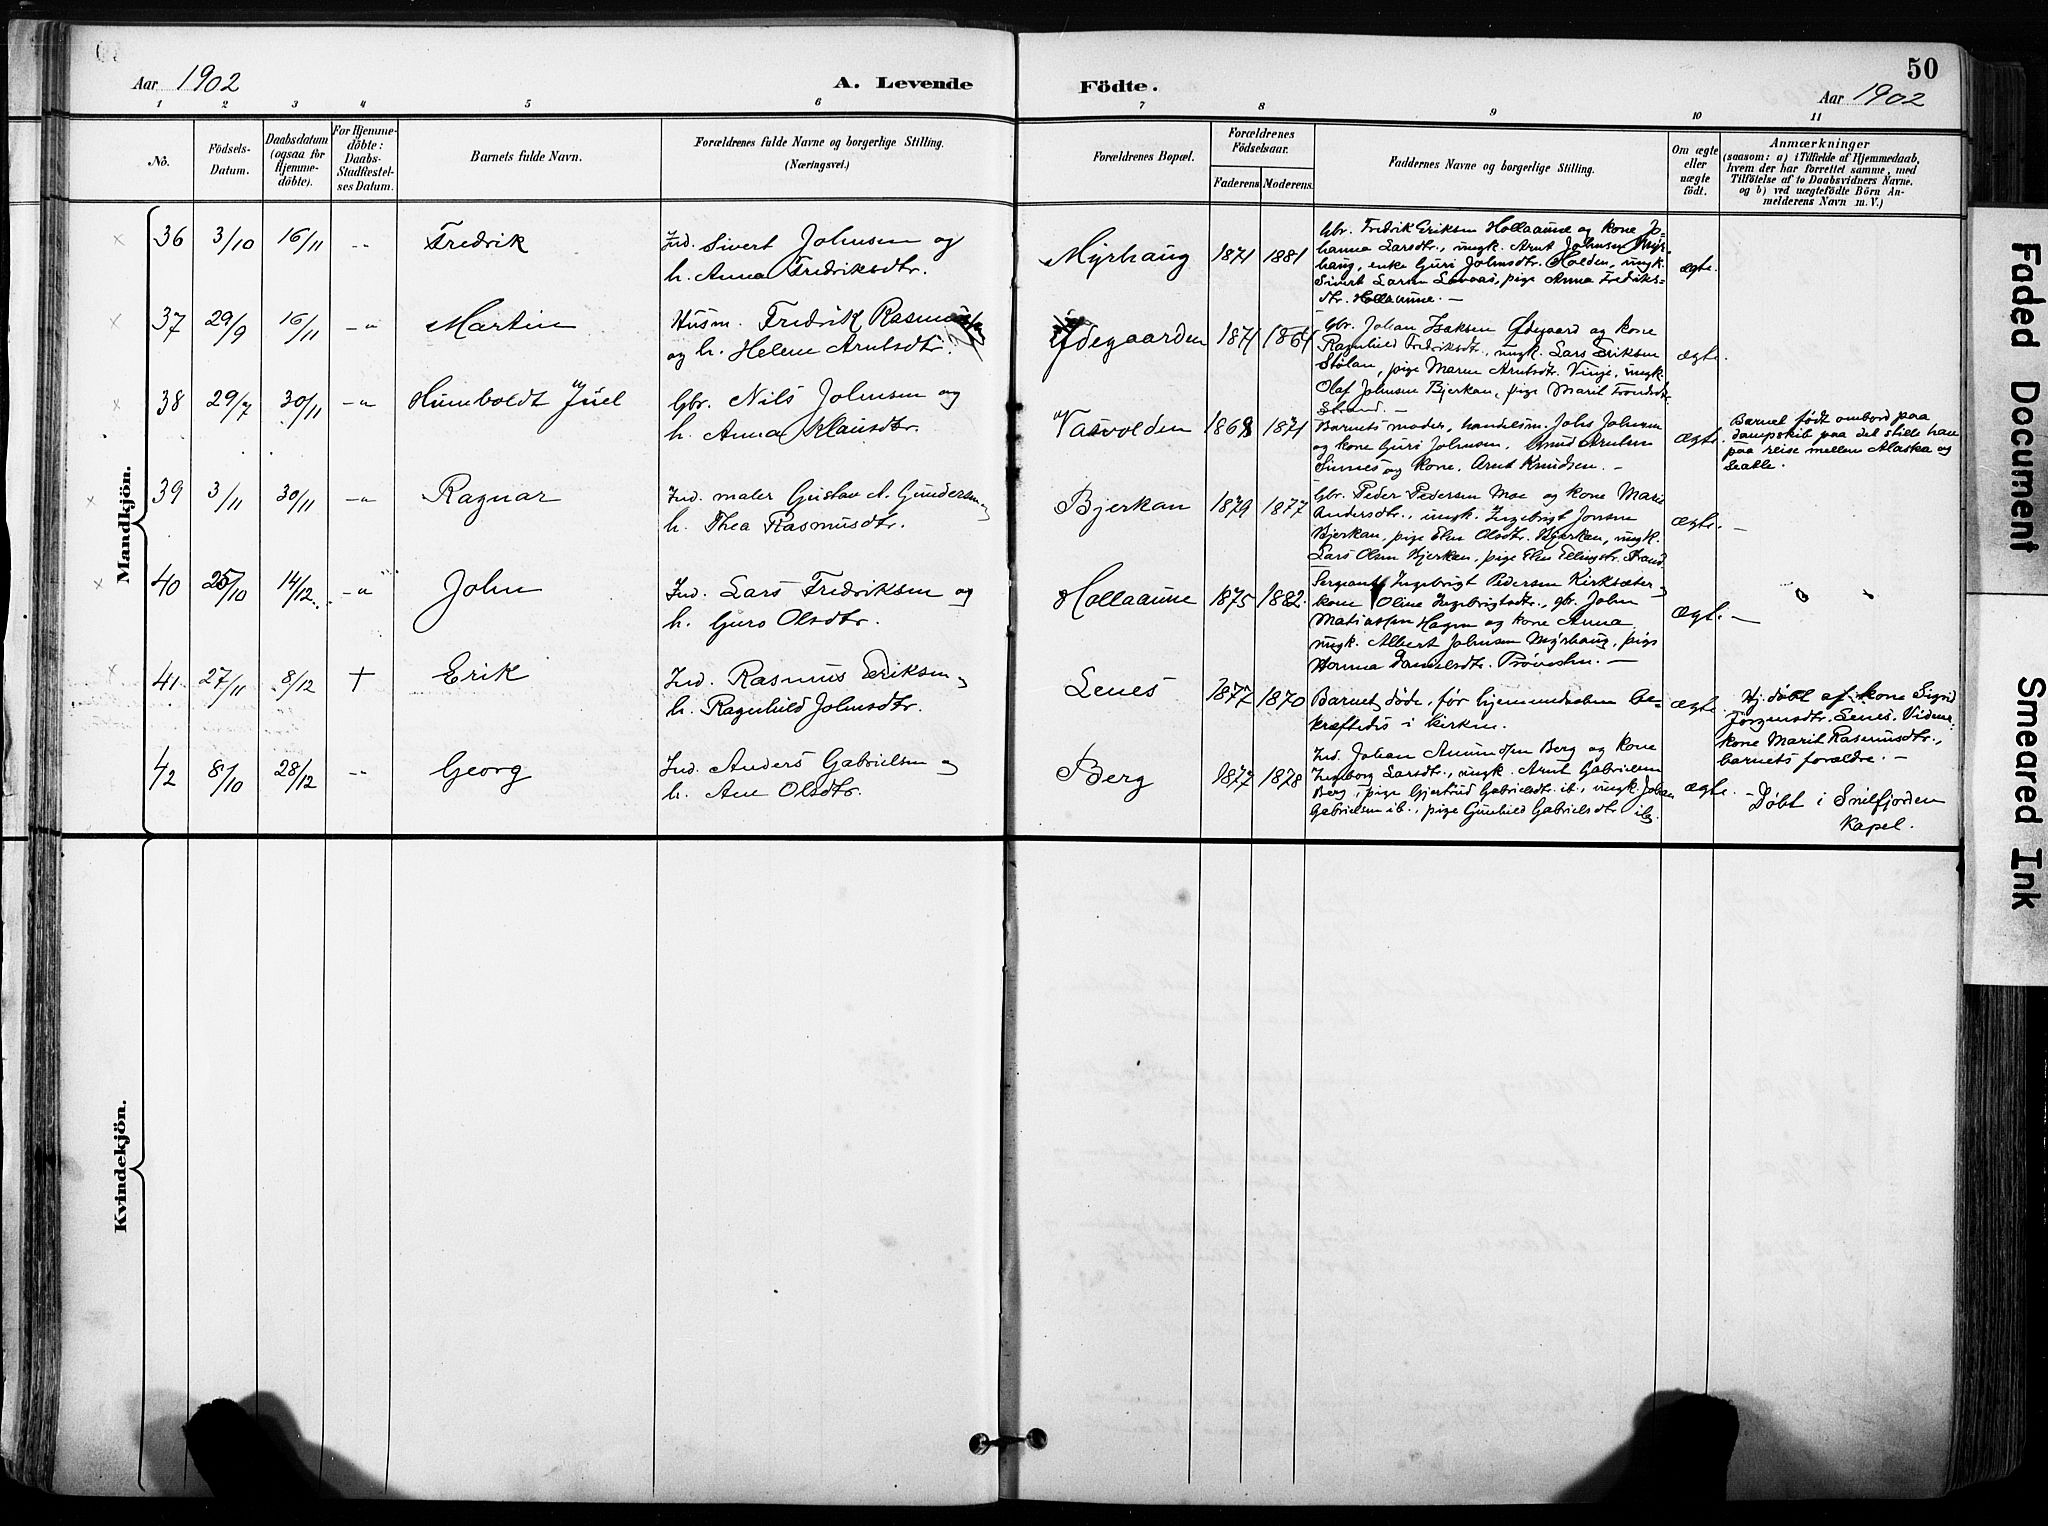 50
Aar 1902 A. Levende Födte. Aar 1902
1 2 3 4 5 6 7 8 9 10 11
No.
Födsels-
Datum.
Daabsdatum
(ogsaa for
Hjemme-
döbte).
For Hjemme-
döbte:
Daabs-
Stadfæstel-
ses Datum.
Barnets fulde Navn.
Forældrenes fulde Navne og borgerlige Stilling.
(Næringsvei.)
Forældrenes Bopæl.
Forældrenes
Födselsaar.
Faderens. Moderens.
Faddernes Navne og borgerlige Stilling.
Om ægte
eller
uægte
födt.
Anmærkninger
(saasom: a) i Tilfælde af Hjemmedaab,
hvem der har forrettet samme, med
Tilföielse af to Daabsvidners Navne.
og b) ved uægtefödte Börn An-
melderens Navn m. V.)
Mandkjön.
36 3/10 16/11 -"- Fredrik
Ind. Sivert Johnsen og
h. Anna Fredriksdtr.
Myrhaug 1871 1881
Gbr. Fredrik Eriksen Hollaaune og kone Jo-
hanna Larsdtr., ungk. Arnt Johnsen Myr-
haug, enke Guri Johnsdtr. Holden, ungk.
Sivert Larsen, pige Anna Fredriks-
dtr. Hollaaune. —
ægte.
37 29/9 16/11 -"- Martin
Husm. Fredrik Rasmussen
og h. Helene Arntsdtr.
Ødegaarden 1871 1864
Gbr. Johan Isaksen Ødegaard og kone
Ragnhild Fredriksdtr., ungk. Lars Eriksen
Stølan, pige Maren Arntsdtr. Vinje, ungk.
Olaf Johnsen Bjerkan, pige Marit Trondsdtr.
Strand. —
ægte.
38 29/7 30/11 -"- Humboldt Juel
Gbr. Nils Johnsen og
h. Anna Klausdtr.
Vasvolden 1868 1871
Barnets moder, handelsm. Johs Johnsen
og kone Guri Johnsen, Knud Arntsen
Sinnes og kone, Arnt Knudsen. —
ægte.
Barnet født ombord paa
dampskib paa det stille hav
paa reise mellem Alaska og
Seatle.
39 3/11 30/11 -"- Ragnar
Ind. maler Gustav A. Gundersen og
h. Thea Rasmusdtr.
Bjerkan 1879 1877
Gbr. Peder Pedersen Moe og kone Marie
Andersdtr., ungk. Ingebrigt Jonsen
Bjerkan, pige Elen Olsdtr. Bjerkan, ungk.
Lars Olsen Bjerkan, pige Elen Ellingsdtr. Strand.
ægte. —
40 25/10 14/12 -"- John
Ind. Lars Fredriksen og
h. Guro Olsdtr.
Hollaaune 1875 1882
Sergeant Ingebrigt Pedersen Kirksæter
kone Oline Ingebrigtsdtr., gbr. John
Matiassen Hagen og kone Anna,
ungk. Albert Johnsen Myrhaug, pige
Hanna Danielsdtr. —
ægt. —
41 27/11 8/12 + Erik
Ind. Rasmus Eriksen og
h. Ragnhild Johnsdtr.
Lenes 1877 1870
Barnet døde, før hjemmedaaben be-
kræftedes i kirken.
ægte.
Hj. døbt af kone Sigrid
Jørgensdtr. Lenes. Vidner:
kone Marit Rasmusdtr.,
barnets forældre. —
42 8/10 28/12 -"- Georg
Ind. Anders Gabrielsen og
h. Ane Olsdtr.
Berg 1877 1878
Ind. Johan Amundsen Berg og kone
Ingeborg Larsdtr., ungk. Arnt Gabrielsen
Berg, pige Gjertrud Gabrielsdtr. ib., ungk. Johan
Gabrielsen ib., pige Gunhild Gabrielsdtr ibd.
ægte.
Døbt i Snilfjorden
kapel.
Kvindekjön.
Faded Document
Smeared Ink